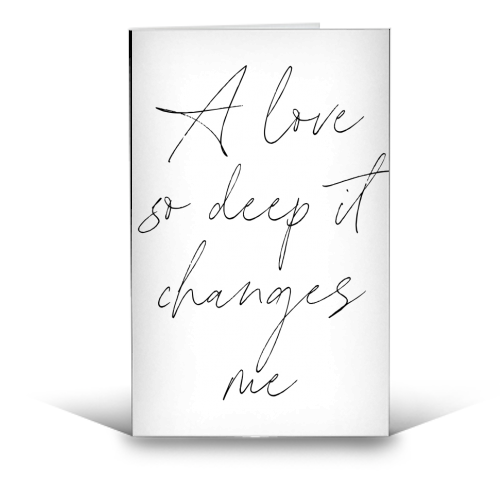 A love
so deep it
changes
me